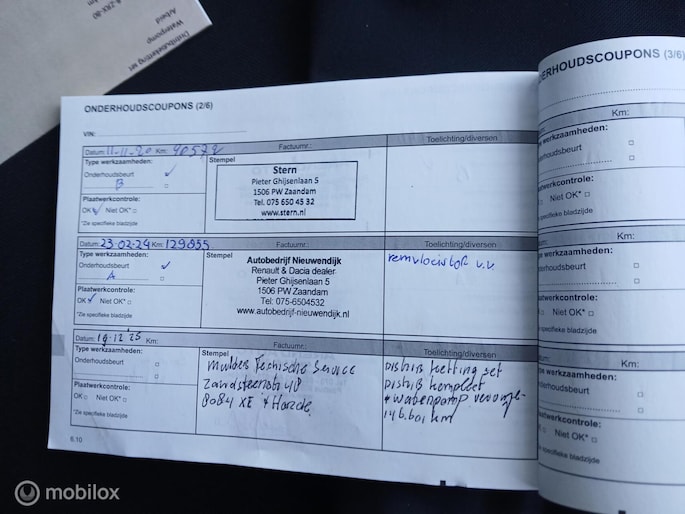 Distributieketting set
Waterpomp
Arbeid
ONDERHOUDSCOUPONS (2/6)
VIN:
Datum: 11-11-20 Km: 40572 Factuurnr.: Toelichting/diversen
Type werkzaamheden:
Onderhoudsbeurt
B
Plaatwerkcontrole:
OK Niet OK*
*Zie specifieke bladzijde
Stempel
Stern
Pieter Ghijsenlaan 5
1506 PW Zaandam
Tel. 075 650 45 32
www.stern.nl
Datum: 23-02-24 Km: 129835 Factuurnr.: Toelichting/diversen
Type werkzaamheden:
Onderhoudsbeurt
A
Plaatwerkcontrole:
OK Niet OK*
*Zie specifieke bladzijde
Stempel
Autobedrijf Nieuwendijk
Renault & Dacia dealer
Pieter Ghijsenlaan 5
1506 PW Zaandam
Tel: 075-6504532
www.autobedrijf-nieuwendijk.nl
remvloeistof v.v.
Datum: 19 12 '25 Km: Factuurnr.: Toelichting/diversen
Type werkzaamheden:
Onderhoudsbeurt
Plaatwerkcontrole:
OK Niet OK*
*Zie specifieke bladzijde
Stempel
Mulder Technische Service
Zandsteenstr 48
8084 XE 't Harde
Distrib ketting set
Distrib kompleet
+ waterpomp
146.601 km
6.10
DERHOUDSCOUPONS (3/6)
Km:
werkzaamheden:
Onderhoudsbeurt
Plaatwerkcontrole:
Niet OK*
specifieke bladzijde
Km:
Type werkzaamheden:
Onderhoudsbeurt
Plaatwerkcontrole:
OK Niet OK*
*Zie specifieke bladzijde
Km:
werkzaamheden:
Onderhoudsbeurt
Plaatwerkcontrole:
OK Niet OK*
*Zie specifieke bladzijde
mobilox